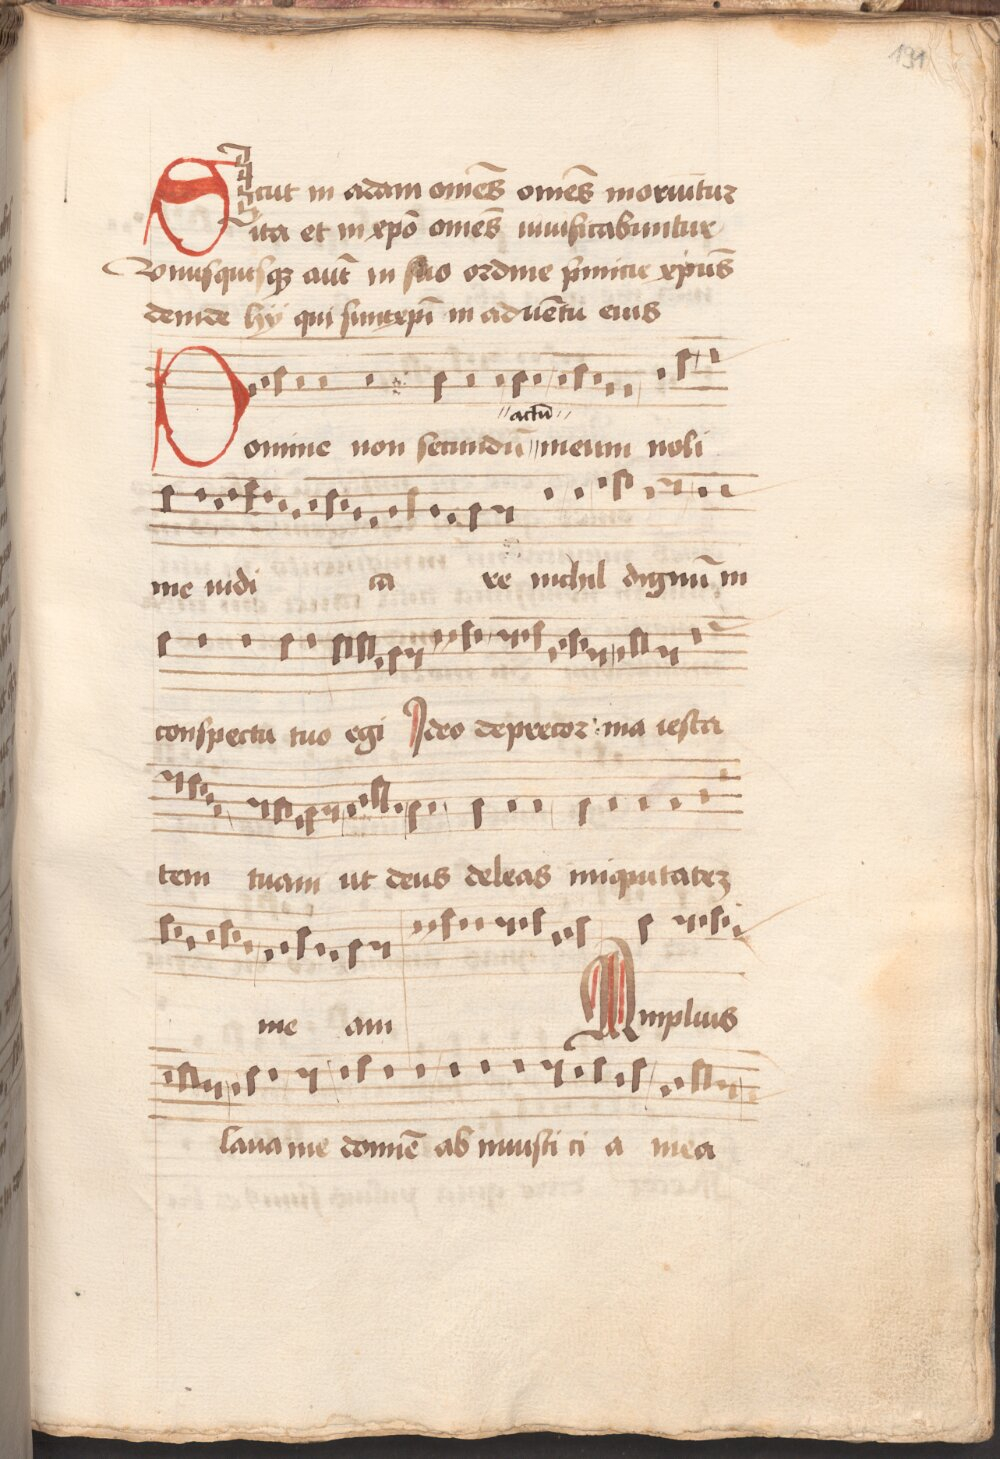 191
Sicut in adam om̄es om̄es moriūtur
ita et in xp̄o om̄es uiuificabuntur
Vnusquisqꝫ aut̄ in suo ordine p̄mitie xp̄us
deinde hij qui sunt xp̄i in aduētu eius
actū
Domine non secundū meum noli
me iudi ca re nichil dignū in
conspectu tuo egi Ideo deprecor ma iesta
tem tuam ut deus deleas iniquitatez
me am Amplius
laua me domīe ab iniusti ci a mea